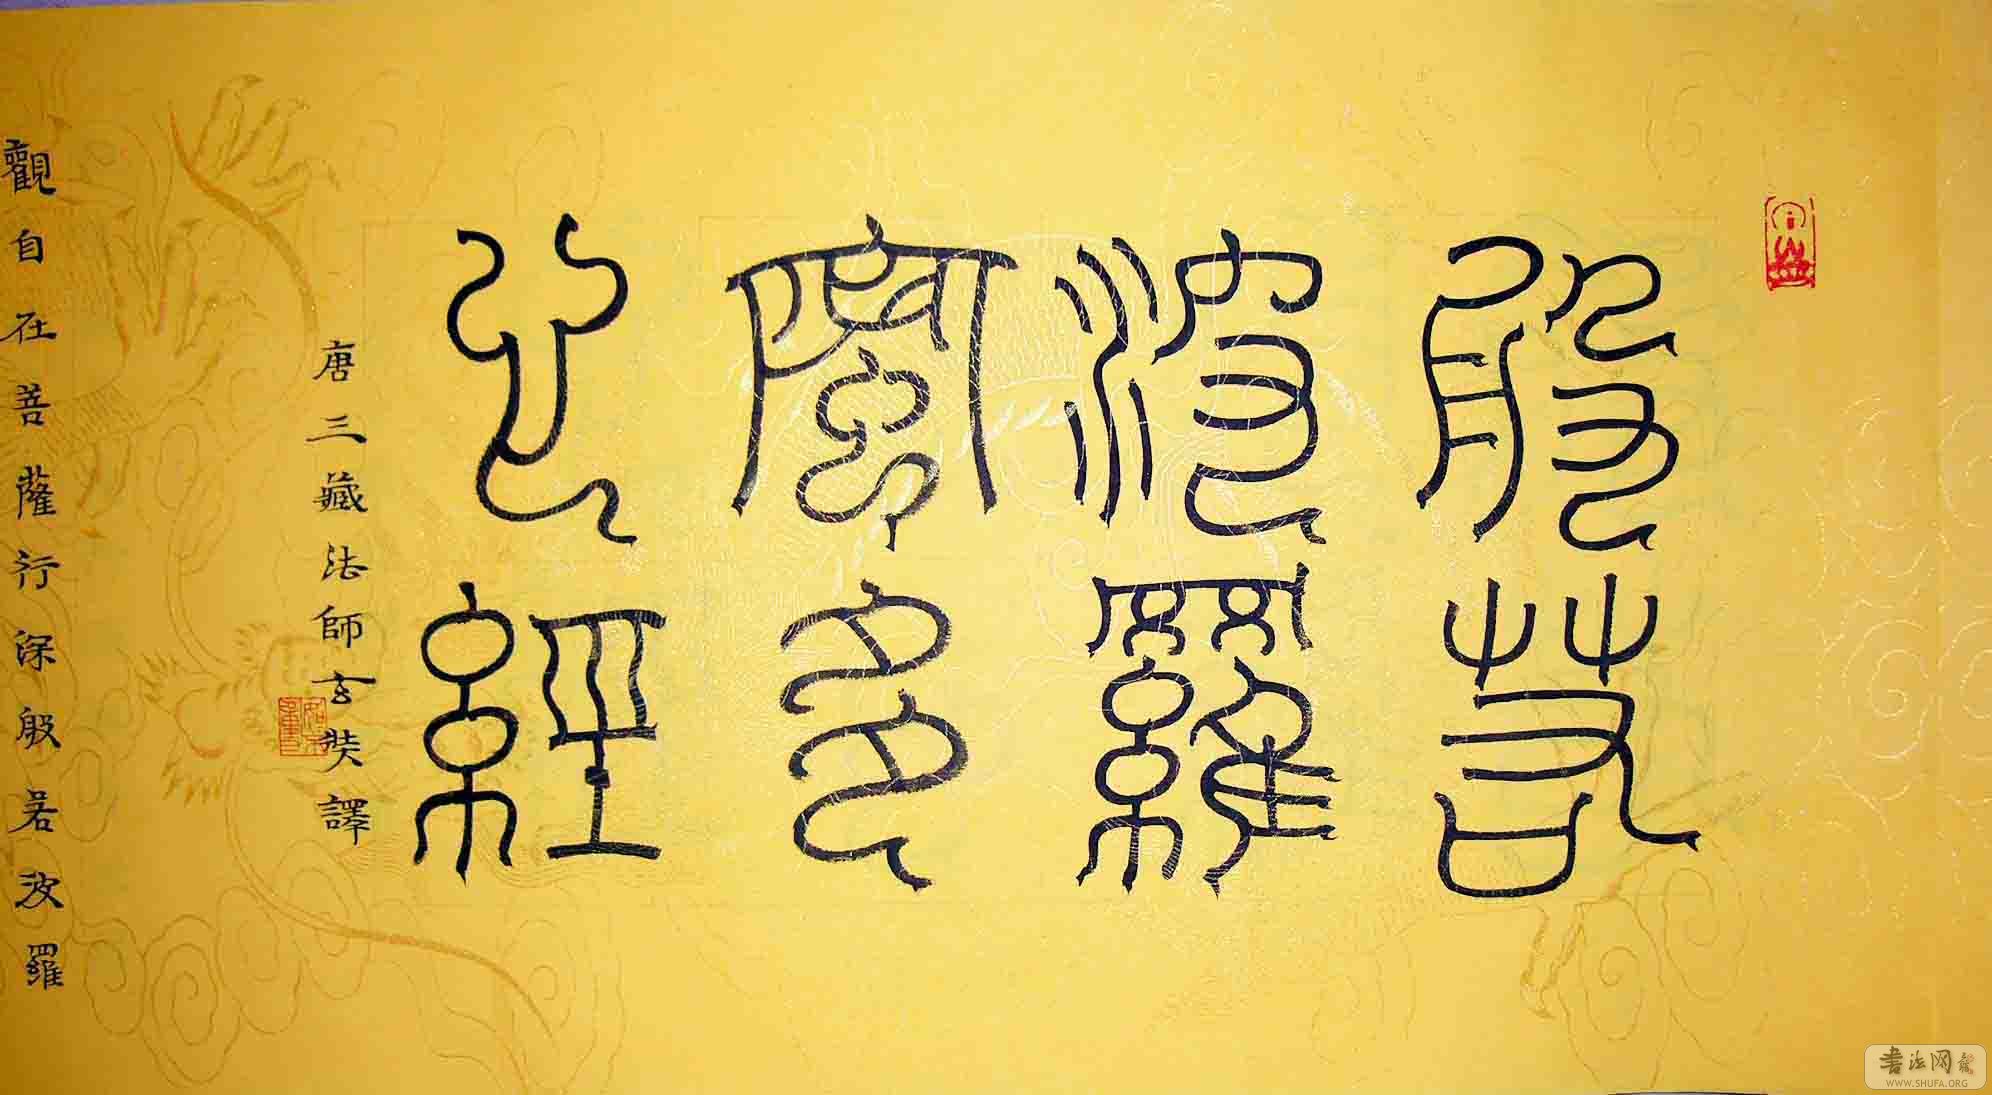 般若
波羅
蜜多
心經
唐三藏法師玄奘譯
觀自在菩薩行深般若波羅
书法网
WWW.SHUFA.ORG